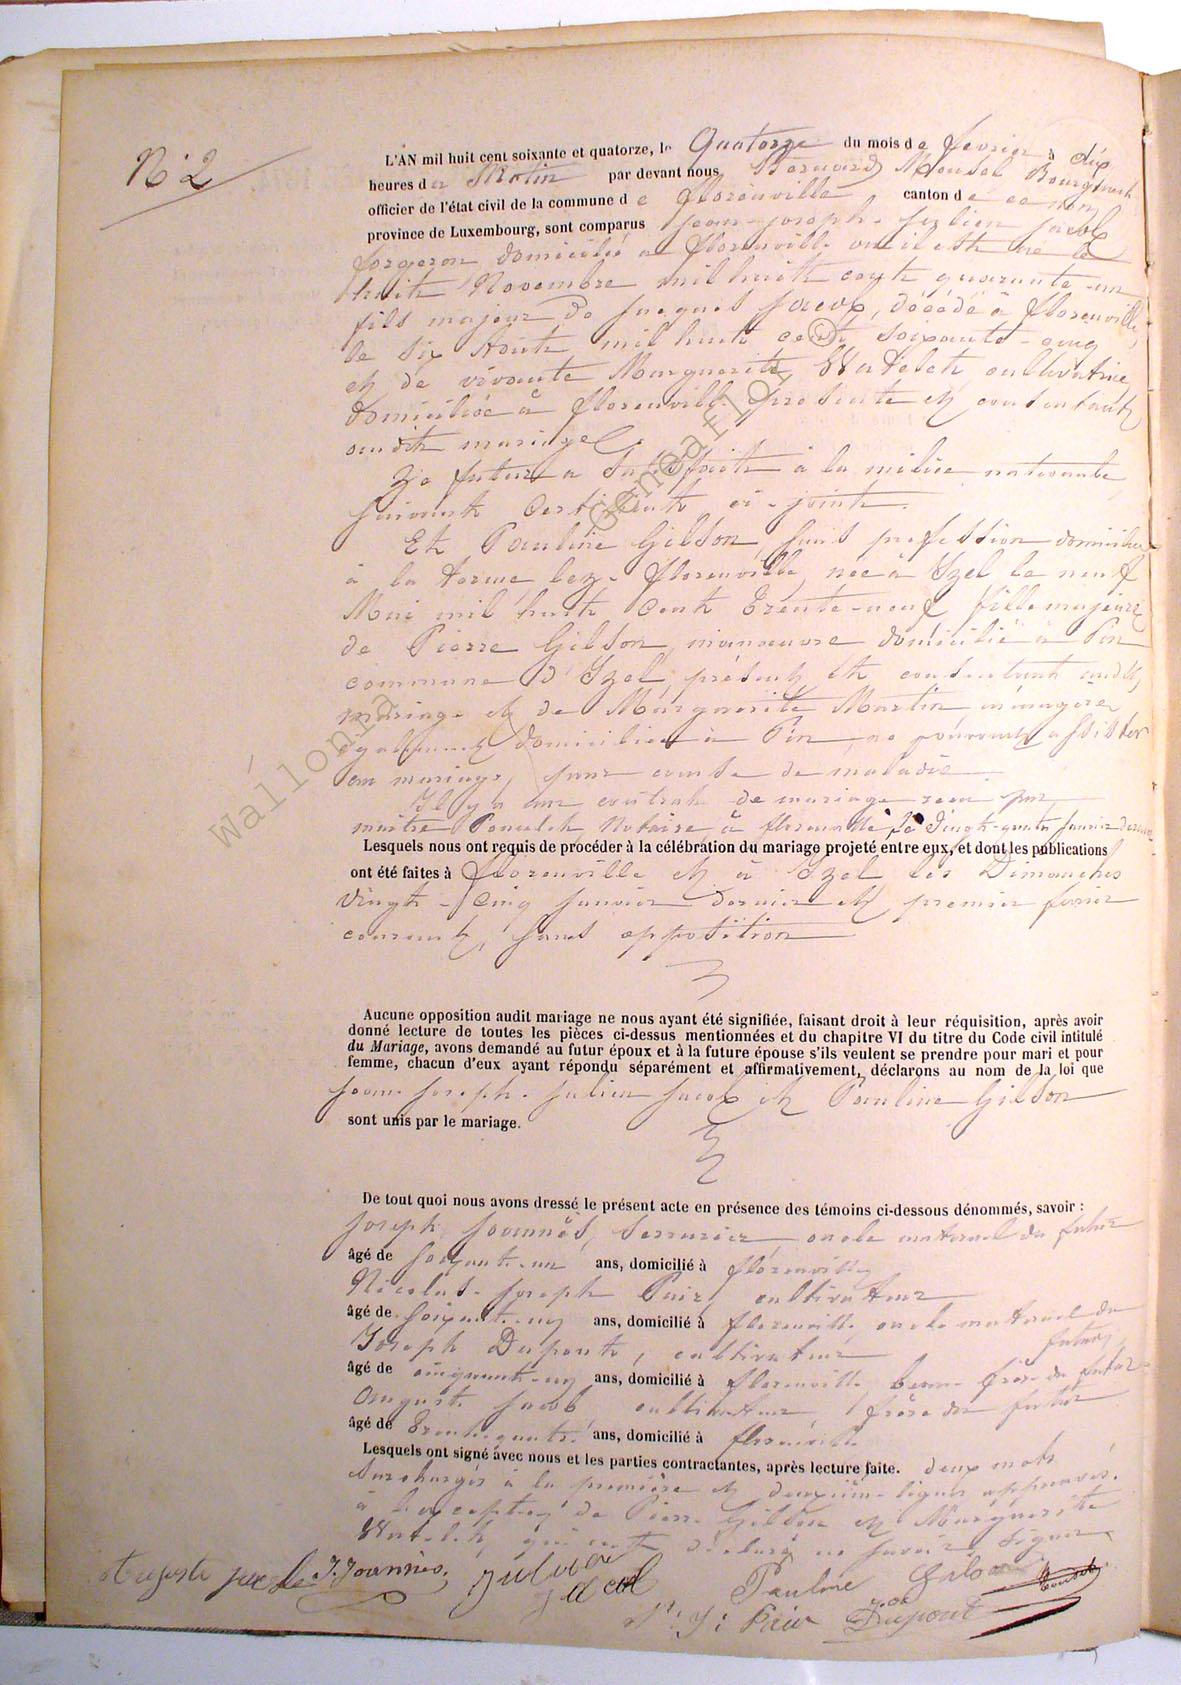 N° 2
L'AN mil huit cent soixante et quatorze, le Quatorze du mois de février à dix
heures du Matin par devant nous, Bernard Mousel Bourgmestre
officier de l'état civil de la commune de Florenville canton de ce nom
province de Luxembourg, sont comparus Jean-Joseph-Julien Jacob
forgeron domicilié à Florenville où il est né le
huit Novembre mil huit cent quarante-un
fils majeur de Jacques Jacob, décédé à Florenville,
le six Août mil huit cent soixante-cinq
et de vivante Marguerite Watelet cultivatrice
domiciliée à Florenville présente et consentant
audit mariage.
Le futur a satisfait à la milice nationale
suivant certificat ci-joint.
Et Pauline Gilson, sans profession domiciliée
à la terme lez-Florenville, née à Izel le neuf
Mai mil huit cent trente-neuf fille majeure
de Pierre Gilson manoeuvre domicilié à Pin
commune d'Izel présent et consentant audit
mariage et de Marguerite Martin ménagère
également domiciliée à Pin, ne pouvant assister
au mariage, pour cause de maladie.
Il y a un contrat de mariage reçu par
maître Poncelet Notaire à florenville le vingt-quatre janvier dernier
Lesquels nous ont requis de procéder à la célébration du mariage projeté entre eux, et dont les publications
ont été faites à Florenville et à Izel les Dimanches
vingt-cinq janvier dernier et premier février
courant, sans opposition
Aucune opposition audit mariage ne nous ayant été signifiée, faisant droit à leur réquisition, après avoir
donné lecture de toutes les pièces ci-dessus mentionnées et du chapitre VI du titre du Code civil intitulé
du Mariage, avons demandé au futur époux et à la future épouse s'ils veulent se prendre pour mari et pour
femme, chacun d'eux ayant répondu séparément et affirmativement, déclarons au nom de la loi que
Jean-Joseph-Julien Jacob et Pauline Gilson
sont unis par le mariage.
De tout quoi nous avons dressé le présent acte en présence des témoins ci-dessous dénommés, savoir :
Joseph Joannès, Serrurier oncle maternel du futur
âgé de soixante-un ans, domicilié à florenville
Nicolas-Joseph Pair, cultivateur
âgé de soixante-un ans, domicilié à florenville oncle maternel du
futur,
Joseph Dupont, cultivateur
âgé de cinquante-un ans, domicilié à florenville beau-frère du futur
Auguste Jacob cultivateur, frère du futur
âgé de trente-quatre ans, domicilié à florenville
Lesquels ont signé avec nous et les parties contractantes, après lecture faite. deux mots
surchargés à la première et deuxième lignes approuvés.
à l'exception de Pierre Gilson et Marguerite
Watelet, qui ont déclaré ne savoir signer
Auguste jacob J. Joannès, Julien Jacob
Pauline Gilson Mousel
N: J: Pair Dupont
wallonia © Geneaflor